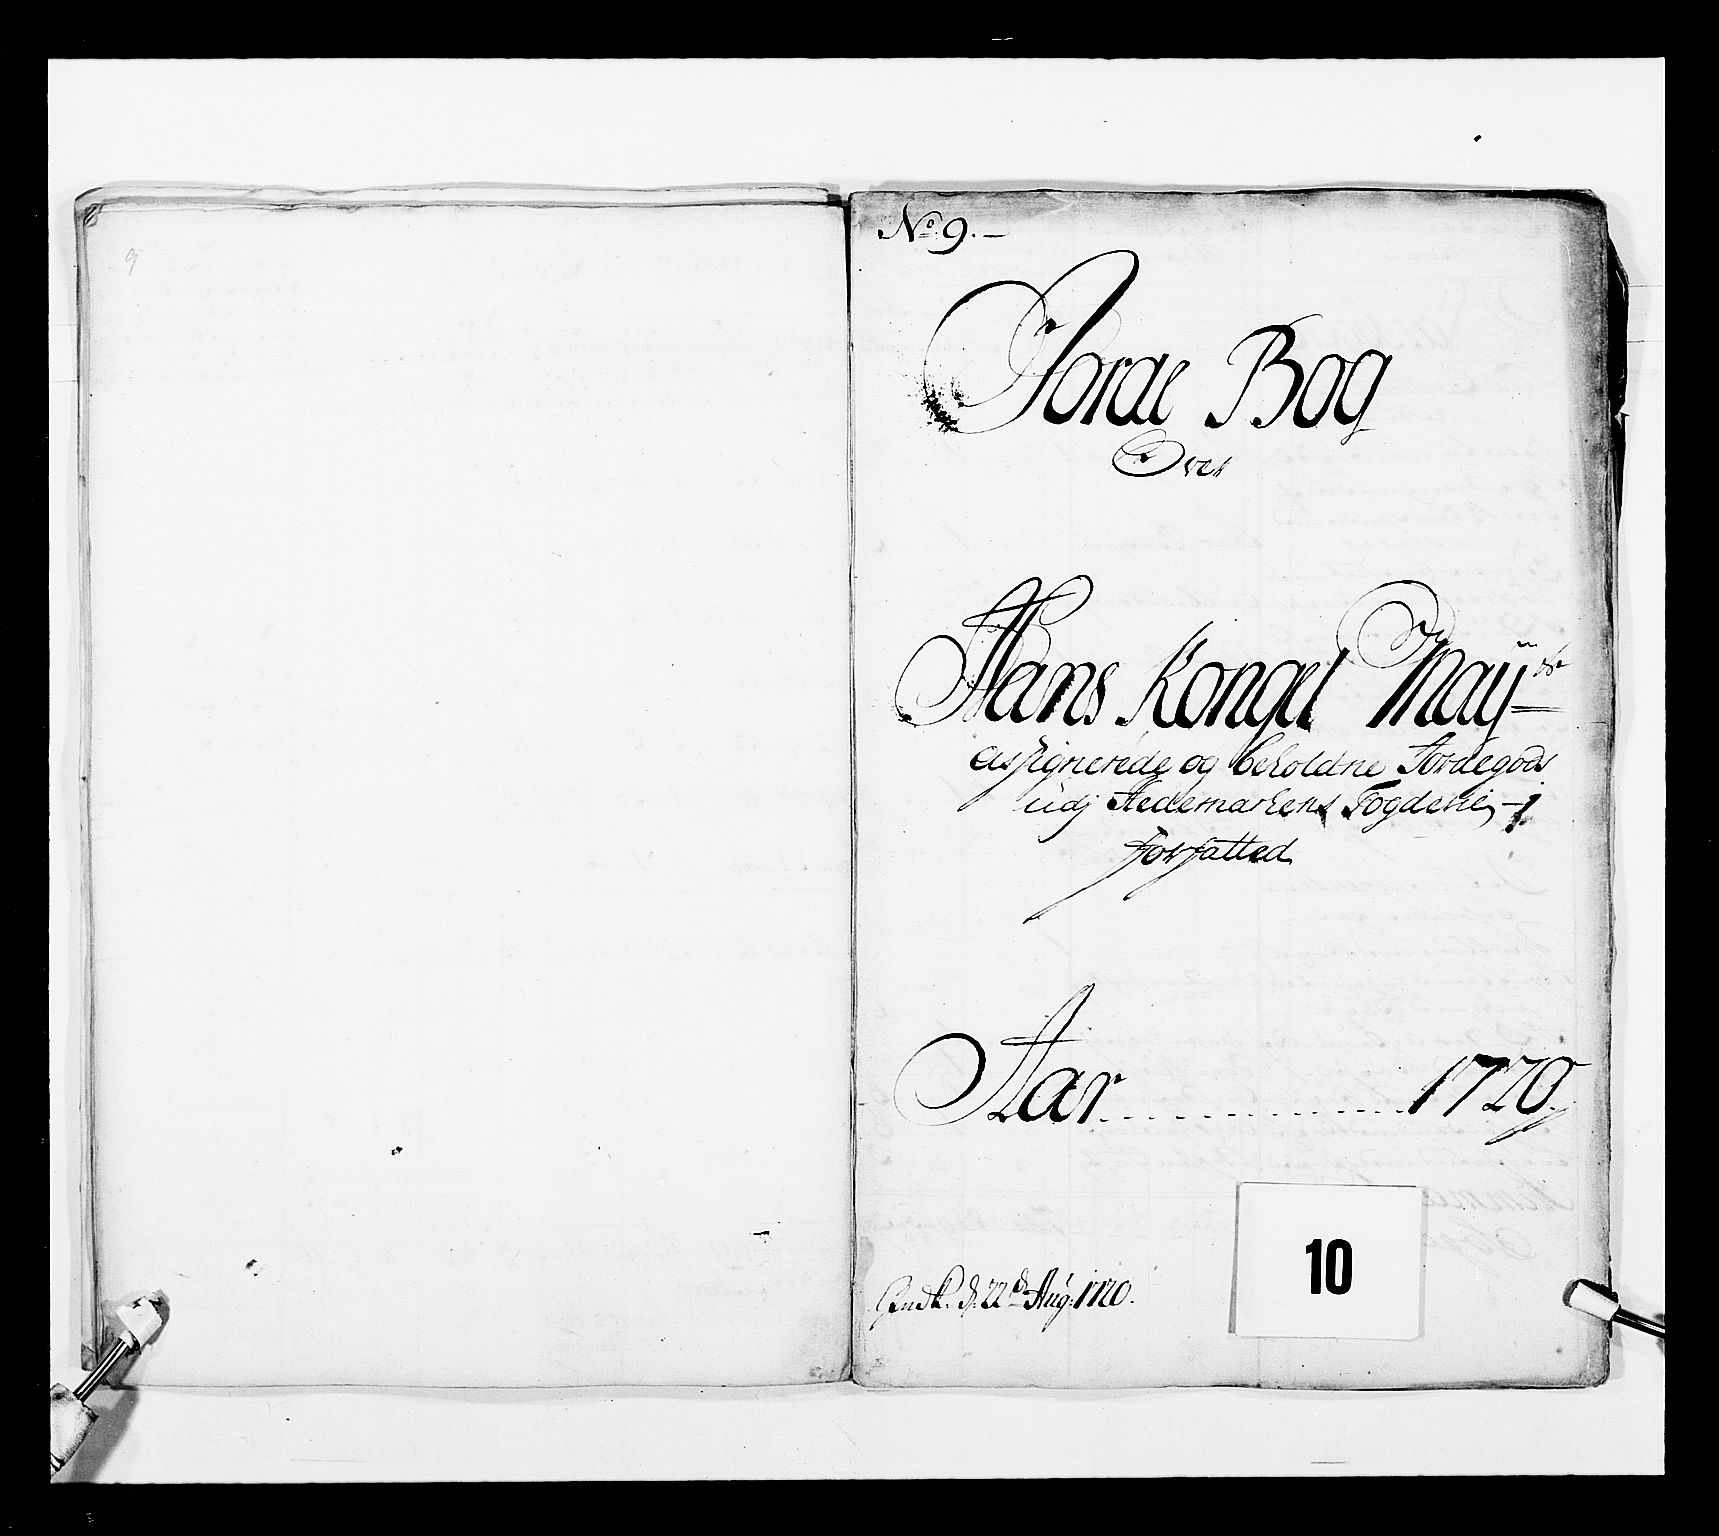 9
No. 9. –
Jorde Bog
Over
Hans Kongel Mayts
assignerede og beholdne Jordegods
udj Hedemarkens Fogderie,
forfatted
Aar. . . . . . . . . . . . . 1720
d. 22d Aug: 1720.
10